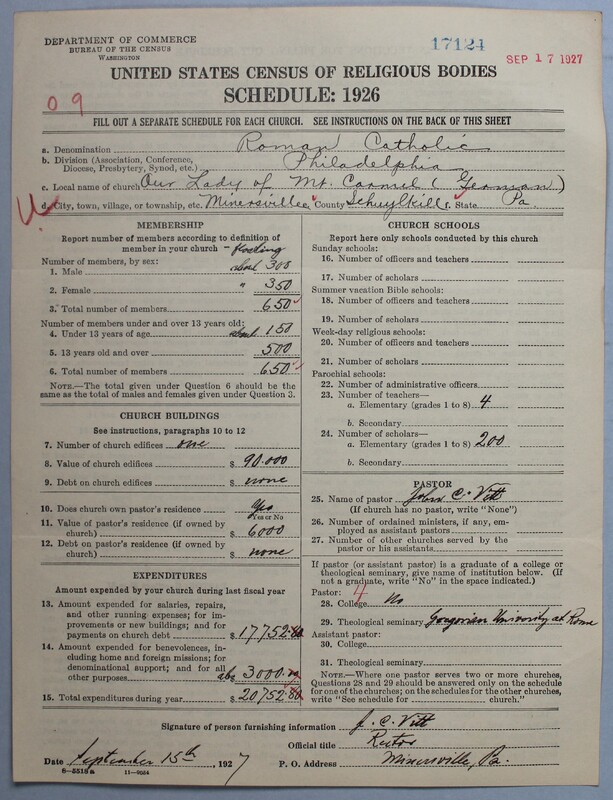 DEPARTMENT OF COMMERCE
BUREAU OF THE CENSUS
WASHINGTON
17124
SEP 17 1927
UNITED STATES CENSUS OF RELIGIOUS BODIES
SCHEDULE: 1926
0 9
FILL OUT A SEPARATE SCHEDULE FOR EACH CHURCH. SEE INSTRUCTIONS ON THE BACK OF THIS SHEET
a. Denomination Roman Catholic
b. Division (Association, Conference, Diocese, Presbytery, Synod, etc.) Philadelphia
c. Local name of church Our Lady of Mt. Carmel (German)
d. City, town, village, or township, etc. Minersville County Schuylkill State Pa.
MEMBERSHIP
Report number of members according to definition of
member in your church - floating
Number of members, by sex:
1. Male about 300
2. Female " 350
3. Total number of members 650
Number of members under and over 13 years old:
4. Under 13 years of age about 150
5. 13 years old and over 500
6. Total number of members 650
NOTE.—The total given under Question 6 should be
the same as the total of males and females given under Question 3.
CHURCH BUILDINGS
See instructions, paragraphs 10 to 12
7. Number of church edifices one
8. Value of church edifices $ 90.000
9. Debt on church edifices $ none
10. Does church own pastor's residence Yes
Yes or No
11. Value of pastor's residence (if owned by
church) $ 6000
12. Debt on pastor's residence (if owned by
church) $ none
EXPENDITURES
Amount expended by your church during last fiscal year
13. Amount expended for salaries, repairs,
and other running expenses; for im-
provements or new buildings; and for
payments on church debt $ 17752.80
14. Amount expended for benevolences, in-
cluding home and foreign missions; for
denominational support; and for all
other purposes abt 3000.
15. Total expenditures during year $ 20,752.80
CHURCH SCHOOLS
Report here only schools conducted by this church
Sunday schools:
16. Number of officers and teachers
17. Number of scholars
Summer vacation Bible schools:
18. Number of officers and teachers
19. Number of scholars
Week-day religious schools:
20. Number of officers and teachers
21. Number of scholars
Parochial schools:
22. Number of administrative officers
23. Number of teachers—
a. Elementary (grades 1 to 8) 4
b. Secondary
24. Number of scholars—
a. Elementary (grades 1 to 8) 200
b. Secondary
PASTOR
25. Name of pastor John C. Vitt
(If church has no pastor, write "None")
26. Number of ordained ministers, if any, em-
ployed as assistant pastors
27. Number of other churches served by the
pastor or his assistants
If pastor (or assistant pastor) is a graduate of a college or
theological seminary, give name of institution below. (If
not a graduate, write "No" in the space indicated.)
Pastor: 4
28. College No
29. Theological seminary Gregorian University at Rome
Assistant pastor:
30. College
31. Theological seminary
NOTE.—Where one pastor serves two or more churches,
Questions 28 and 29 should be answered only on the schedule
for one of the churches; on the schedules for the other churches,
write "See schedule for church."
Signature of person furnishing information J. C. Vitt
Official title Rector
Date September 15th, 1927 P. O. Address Minersville, Pa.
8—5518a 11—9564